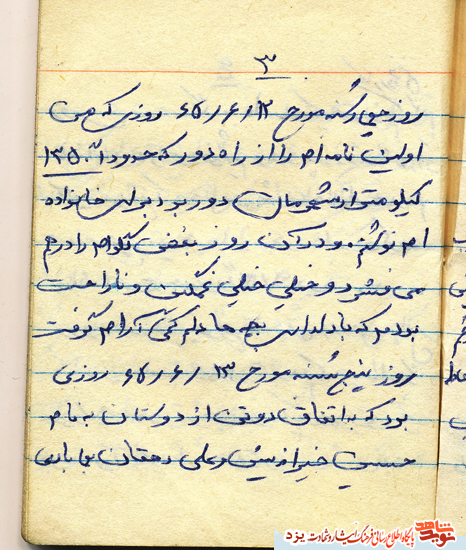 ۳
روز چهارشنبه مورخ ۶۵/۶/۱۲ روزی که من
اولین نامه‌ام را از راه دور که حدوداً ۱۳۵۰
کیلومتر از شهرمان دور بود برای خانواده
ام نوشتم و در آن روز بغض گلوام را درهم
می فشرد و خیلی خیلی غمگین و ناراحت
بودم که با دلداری بچه ها دلم کمی آرام گرفت
روز پنج شنبه مورخ ۶۵/۶/۱۳ روزی
بود که به اتفاق دوتن از دوستان به نام
حسین و علی دهقان
نوید شاهد
پایگاه اطلاع رسانی فرهنگ ایثار و شهادت یزد